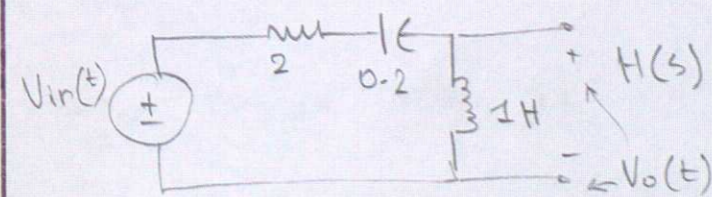 Vin(t)
±
2
0.2
1H
+
H(s)
-
Vo(t)